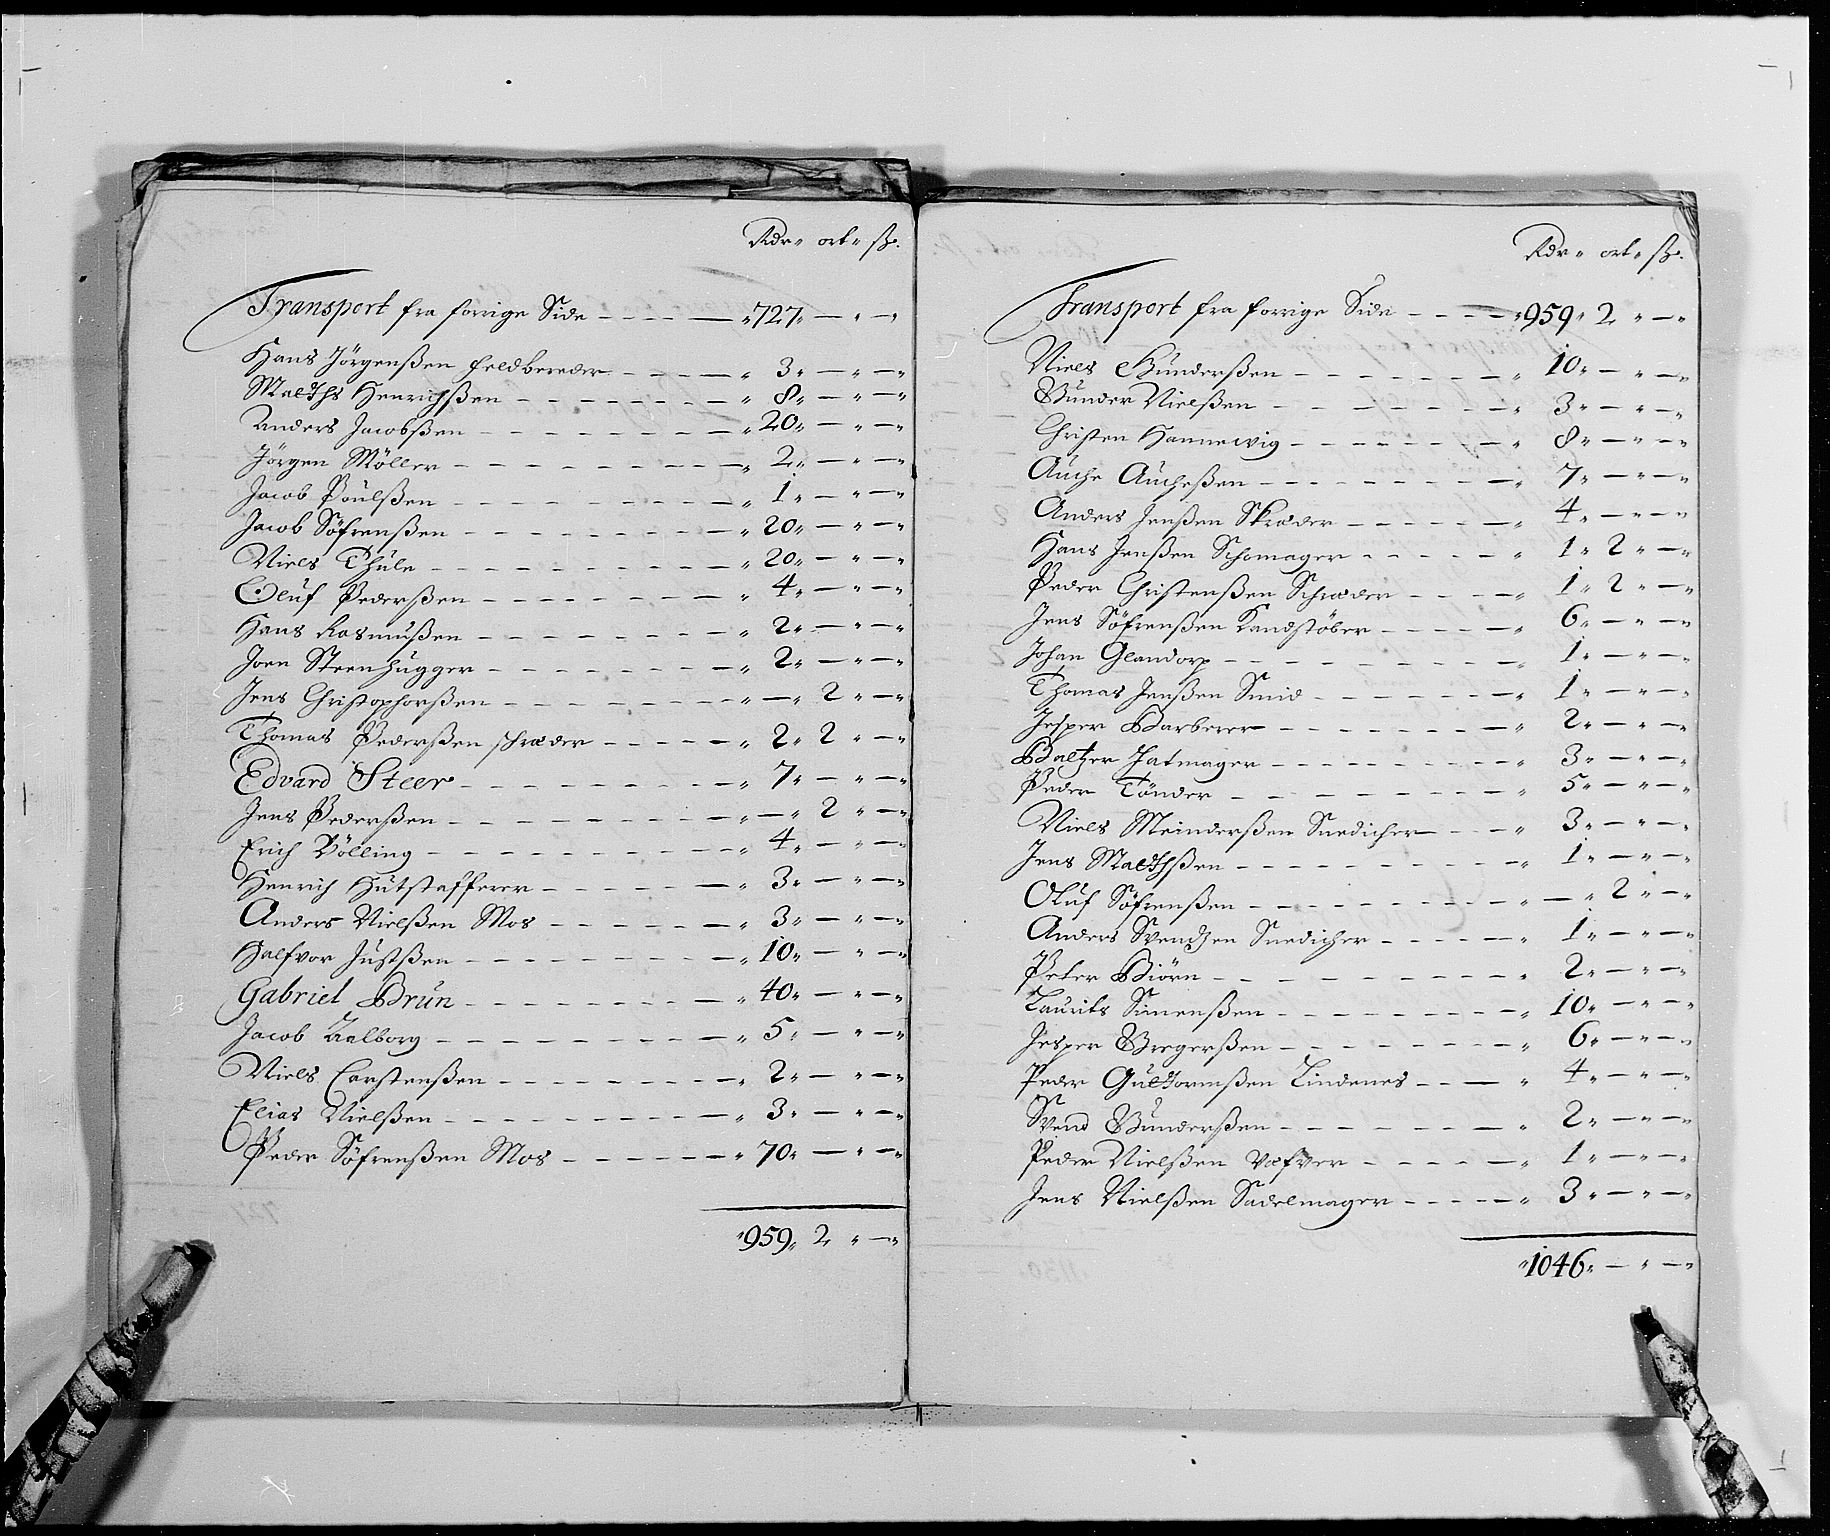 Rdr " ort " sz.
Transport fra forrige Side — " 727 " — " — "
Hans Jörgenßen feldbereder — " 3 " — " — "
Malths Henrichßen — " 8 " — " — "
Anders Jacobßen — " 20 " — " — "
Jörgen Möller — " 2 " — " — "
Jacob Poulßen — " 1 " — " — "
Jacob Söfrenßen — " 20 " — " — "
Niels Thule — " 20 " — " — "
Oluf Pederßen — " 4 " — " — "
Hans Rasmußen — " 2 " — " — "
Joen Steenhugger — " 2 " — " — "
Jens Christophorßen — " — " 2 " — "
Thomas Pederßen schræder — " 2 " 2 " — "
Edvard Steer — " 7 " — " — "
Jens Pederßen — " — " 2 " — "
Erich Bölling — " 4 " — " — "
Henrich Hutstafferer — " 3 " — " — "
Anders Nielßen Mos — " 3 " — " — "
Halfvor Justßen — " 10 " — " — "
Gabriel Brun — " 40 " — " — "
Jacob Aalborg — " 5 " — " — "
Niels Carstenßen — " 2 " — " — "
Elias Nielßen — " 3 " — " — "
Peder Söfrenßen Mos — " 70 " — " — "
" 959 " 2 " — "
Rdr " ort " sz.
Transport fra forrige Side — " 959 " 2 " — "
Niels Gunderßen — " 10 " — " — "
Gunder Nielßen — " 3 " — " — "
Christen Hannewig — " 8 " — " — "
Auche Aucheßen — " 7 " — " — "
Anders Jenßen Skræder — " 4 " — " — "
Hans Jenßen Schomager — " 1 " 2 " — "
Peder Christenßen Schræder — " 1 " 2 " — "
Jens Söfrenßen Kandstöber — " 6 " — " — "
Johan Glandorp — " 1 " — " — "
Thomas Jenßen Smid — " 1 " — " — "
Jesper Barberer — " 2 " — " — "
Baltzer Hatmager — " 3 " — " — "
Peder Tönder — " 5 " — " — "
Niels Meinderßen Snedicher — " 3 " — " — "
Jens Malthßen — " 1 " — " — "
Oluf Söfrenßen — " — " 2 " — "
Anders Svendzen Snedicher — " 1 " — " — "
Peter Biörn — " 2 " — " — "
Laurits Simenßen — " 10 " — " — "
Jesper Gregerßen — " 6 " — " — "
Peder Gultormßen Lindenes — " 4 " — " — "
Svend Gunderßen — " 2 " — " — "
Peder Nielßen Væfver — " 1 " — " — "
Jens Nielßen Sadelmager — " 3 " — " — "
" 1046 " — " — "